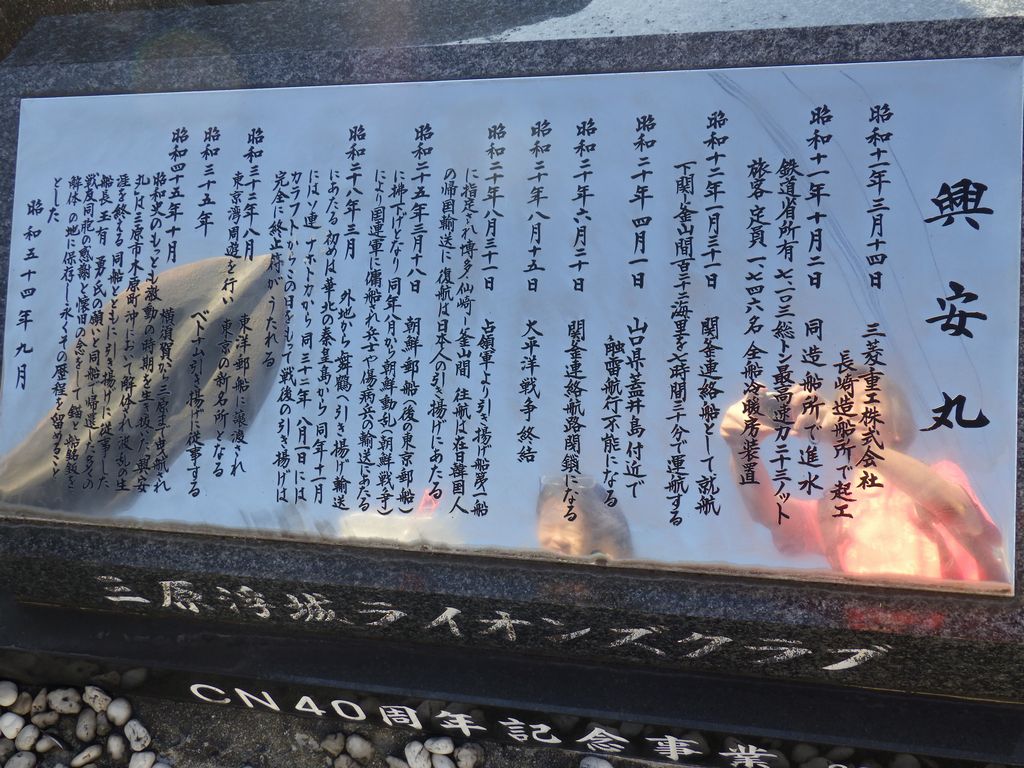 興安丸
昭和十一年三月十四日 三菱重工株式会社
長崎造船所で起工
昭和十一年十月二日 同造船所で進水
鉄道省所有 七、〇三総トン最高速力二十三ノット
旅客定員 一七四六名 全船冷暖房装置
昭和十二年一月三十一日 関釜連絡船として就航
下関〜釜山間百二十二海里を七時間三十分で運航する
昭和二十年四月一日 山口県蓋井島付近で
触雷航行不能になる
昭和二十年六月二十日 関釜連絡航路閉鎖になる
昭和二十年八月十五日 大平洋戦争終結
昭和二十年八月三十一日 占領軍より引き揚げ船第一船
に指定され博多・仙崎〜釜山間 往航は在日韓国人
の帰国輸送に復航は日本人の引き揚げにあたる
昭和二十五年三月十八日 朝鮮郵船(後の東京郵船)
に払下げとなり 同年六月から朝鮮動乱(朝鮮戦争)
により国連軍に傭船され兵士や傷病兵の輸送にあたる
昭和二十八年三月 外地から舞鶴へ引き揚げ輸送
にあたる 初めは華北の秦皇島から 同年十一月
にはソ連 ナホトカから 同三十二年八月一日には
カラフトからこの日をもって戦後の引き揚げは
完全に終止符がうたれる
昭和三十二年八月 東洋郵船に譲渡され
東京湾周遊を行い 東京の新名所となる
昭和三十五年 ベトナム引き揚げに従事する
昭和四十五年十月 横須賀から三原まで曳航され
昭和史のもっとも激動の時期を生き抜いた興安
丸は三原市木原町沖において解体され波乱の生
涯を終える 同船とともに引き揚げに従事した
船長玉有勇氏の願いと同船で帰還した多くの
戦友同胞の感謝と惜旧の念をこめて錨と船銘板を
解体の地に保存し永くその歴程を留めること
とした
昭和五十四年九月
三原浮城ライオンズクラブ
CN40周年記念事業